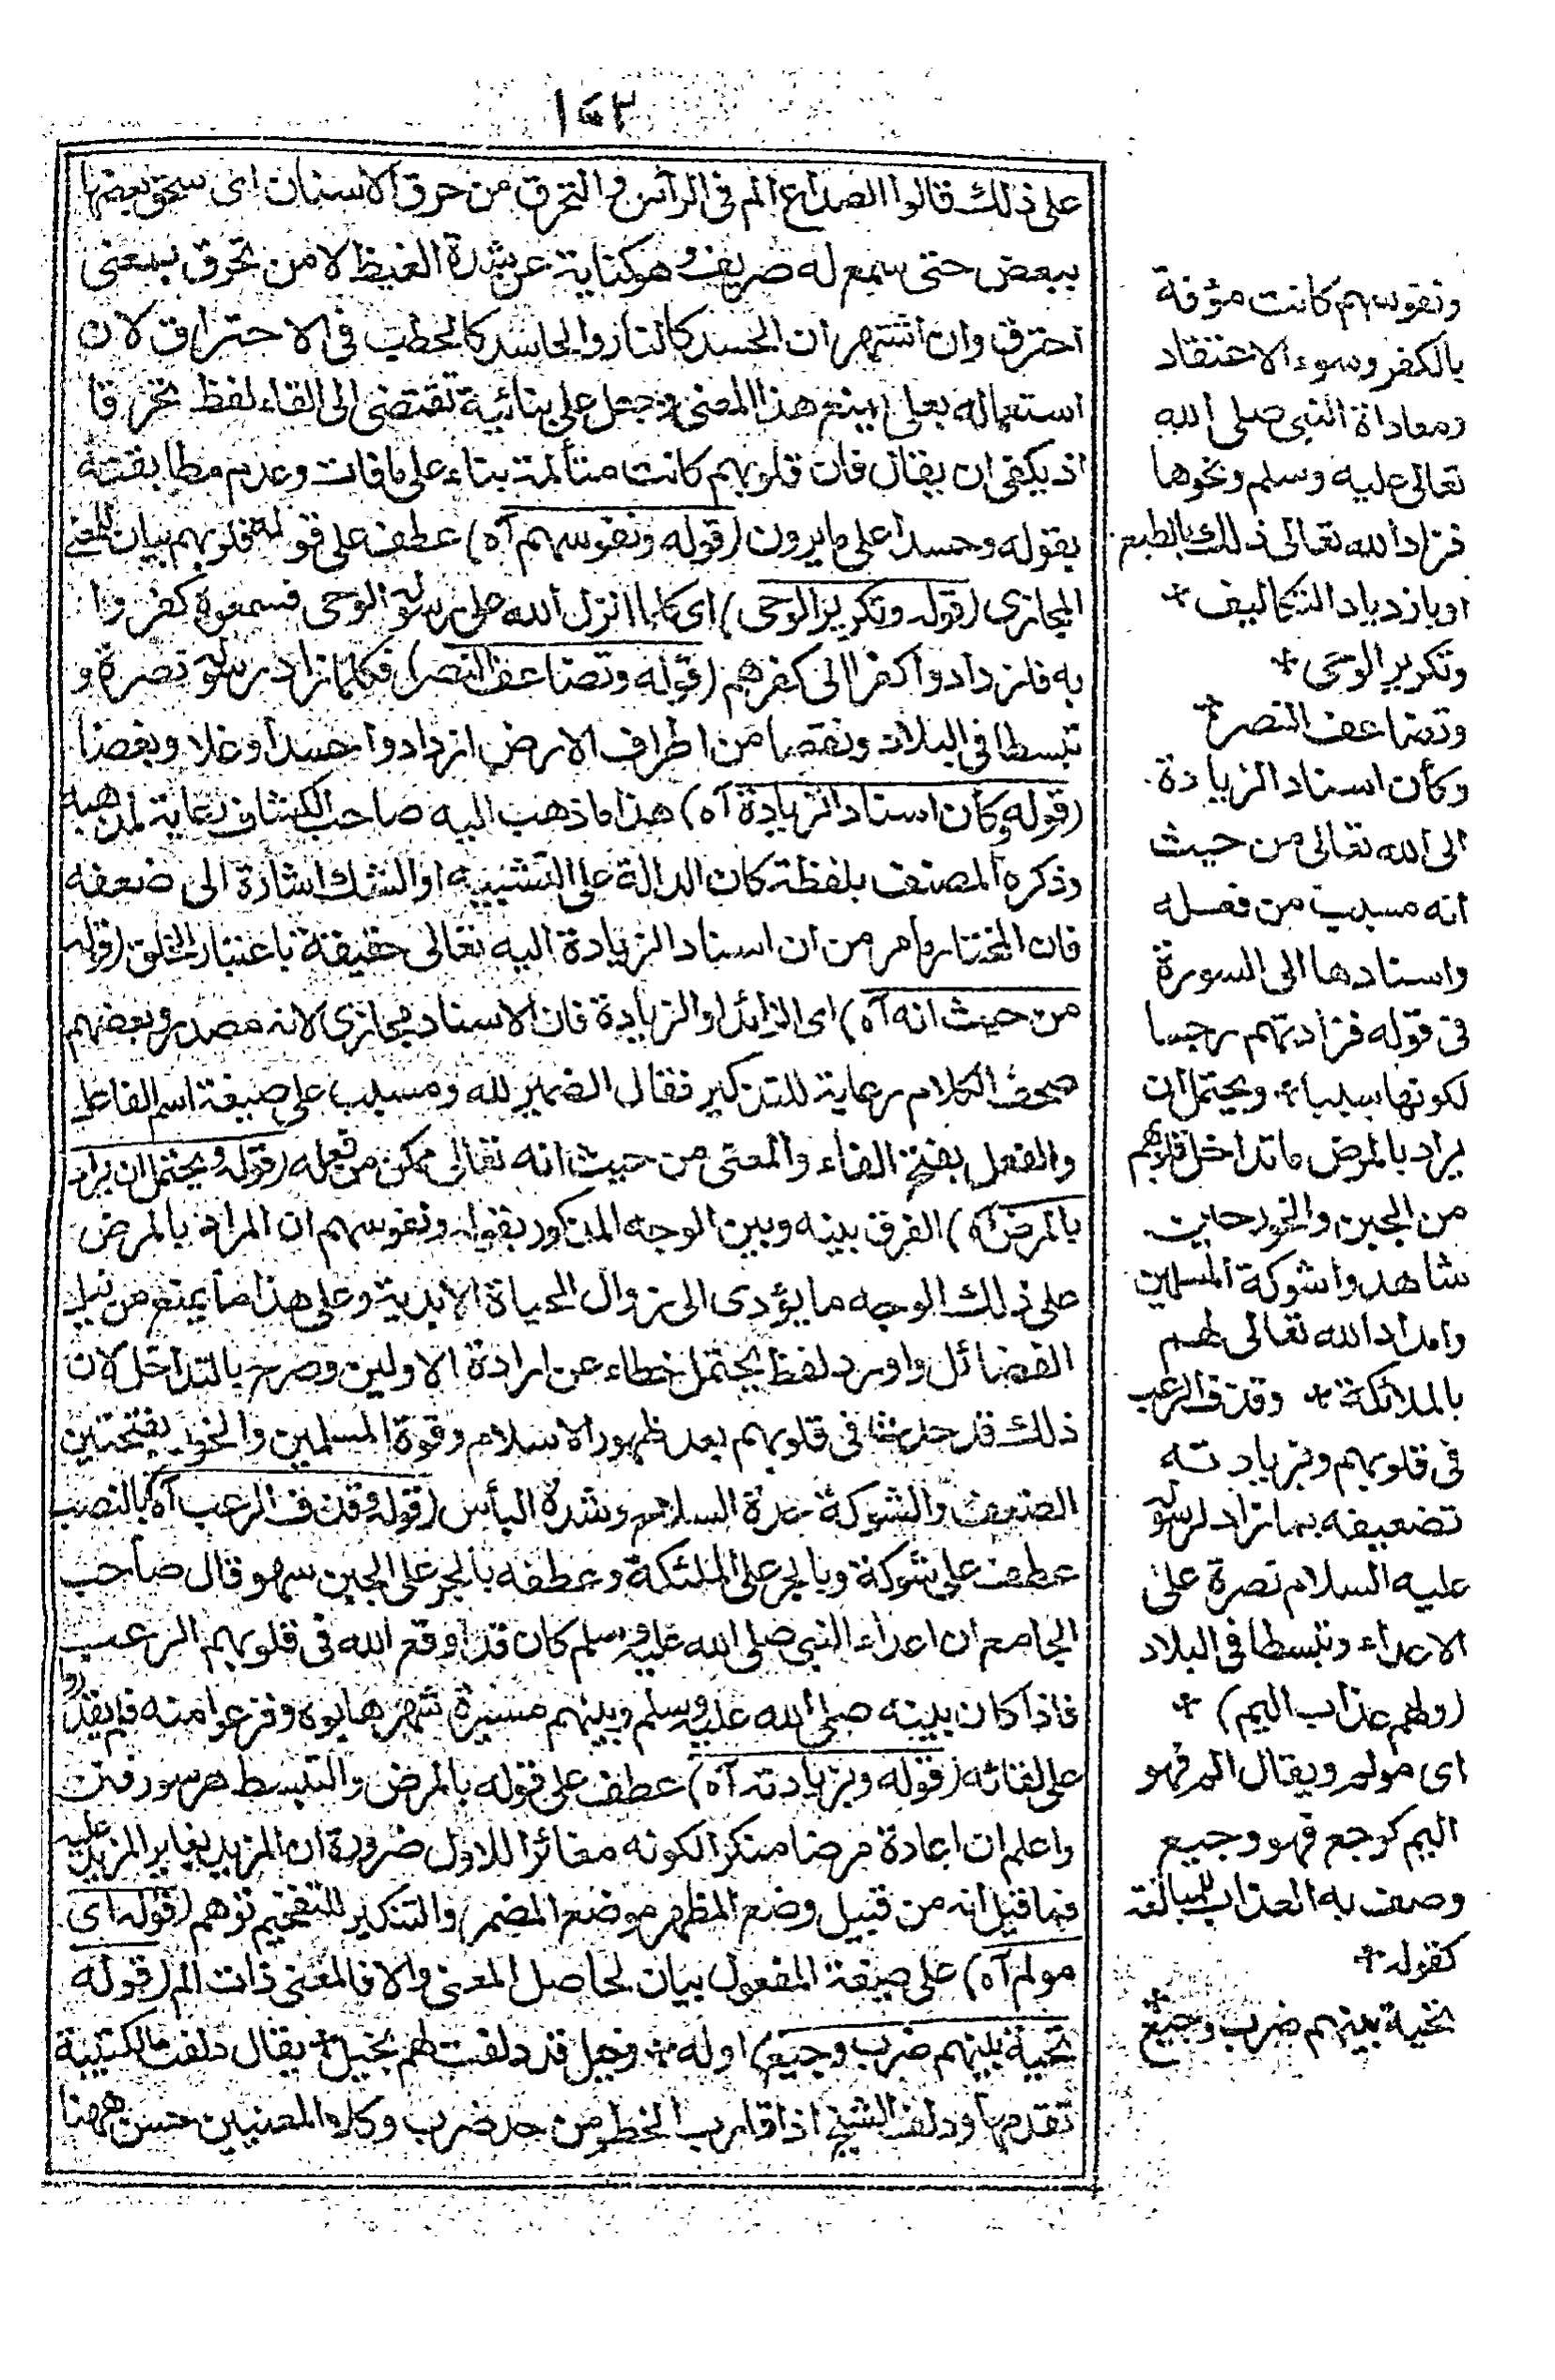 ١٥٣
على ذلك قالوا الصداع الم فى الرأس والتحرق من حرق الاسنان اى سحق بعضها
ببعض حتى سمع له صريف وهو كناية عن شدة الغيظ لا من تحرق بمعنى
احترق وان اشتهر ان الحسد كالنار والحاسد كالحطب فى الاحتراق لان
استعماله بعلى يمنع هذا المعنى وجعل على بنائية تقتضى الى القاء لفظ تحرقا
اذ يكفى ان يقال فان قلوبهم كانت متألمة بناء على ما فات وعدم مطابقته
بقوله وحسدا على ما يرون (قوله ونفوسهم آه) عطف على قوله قلوبهم بيان للمعنى
المجازى (قوله وتكرير الوحى) اى كلما انزل الله على رسوله الوحى فسمعوه كفروا
به فازدادوا كفرا الى كفرهم (قوله وتضاعف النصر) فكلما زاد رسوله نصرة و
تبسطا فى البلاد ونقصا من اطراف الارض ازدادوا حسدا وغلا وبغضا
(قوله وكأن اسناد الزيادة آه) هذا ما ذهب اليه صاحب الكشاف رعاية لمذهبه
وذكره المصنف بلفظة كان الدالة على التشبيه او الشك اشارة الى ضعفه
فان المختار ما مر من ان اسناد الزيادة اليه تعالى حقيقة باعتبار الخلق (قوله
من حيث انه آه) اى الزائد او الزيادة فان الاسناد مجازى لانه مصدر وبعضهم
صحف الكلام رعاية للتذكير فقال الضمير لله ومسبب على صيغة اسم الفاعل
والفعل بفتح الفاء والمعنى من حيث انه تعالى ممكن من فعله (قوله ويحتمل ان يراد
بالمرض آه) الفرق بينه وبين الوجه المذكور بقوله ونفوسهم ان المراد بالمرض
على ذلك الوجه ما يؤدى الى زوال الحياة الابدية وعلى هذا ما يمنع من نيل
الفضائل واورد لفظ يحتمل خطاء عن ارادة الاولين وصرح بالتداخل لان
ذلك قد حدث فى قلوبهم بعد ظهور الاسلام وقوة المسلمين والخور بفتحتين
الضعف والشوكة حدة السلاح وشدة البأس (قوله وقذف الرعب آه) بالنصب
عطف على شوكة وبالجر على الملئكة وعطفه بالجر على الجبن سهو قال صاحب
الجامع ان اعداء النبى صلى الله عليه وسلم كان قد اوقع الله فى قلوبهم الرعب
فاذا كان بينه صلى الله عليه وسلم وبينهم مسيرة شهر هابوه وفزعوا منه فلم يقدروا
على لقائه (قوله وبزيادته آه) عطف على قوله بالمرض والتبسط
واعلم ان اعادة مرضا منكرا لكونه مغائرا للاول ضرورة ان المزيد يغاير المزيد عليه
فما قيل انه من قبيل وضع المظهر موضع المضمر والتنكير للتفخيم توهم (قوله اى
مولم آه) على صيغة المفعول بيان لحاصل المعنى والا فالمعنى ذات الم (قوله
تحية بينهم ضرب وجيع) اوله ۞ وخيل قد دلفت لهم بخيل ۞ يقال دلفت الكتيبة
تقدمها ودلف الشيخ اذا قارب الخطو من حد ضرب وكلا المعنيين حسن ههنا
ونفوسهم كانت مؤفة
بالكفر وسوء الاعتقاد
ومعاداة النبى صلى الله
تعالى عليه وسلم ونحوها
فزاد الله تعالى ذلك بالطبع
او بازدياد التكاليف ۞
وتكرير الوحى ۞
وتضاعف النصر ۞
وكأن اسناد الزيادة
الى الله تعالى من حيث
انه مسبب من فعله
واسنادها الى السورة
فى قوله فزادتهم رجسا
لكونها سببا ۞ ويحتمل ان
يراد بالمرض ما تداخل قلوبهم
من الجبن والخور حين
شاهدوا شوكة المسلمين
وامداد الله تعالى لهم
بالملائكة ۞ وقذف الرعب
فى قلوبهم وبزيادته
تضعيفه بما زاد لرسوله
عليه السلام نصرة على
الاعداء وتبسطا فى البلاد
(ولهم عذاب اليم) ۞
اى مولم ويقال الم فهو
اليم كوجع فهو وجيع
وصف به العذاب للمبالغة
كقوله ۞
تحية بينهم ضرب وجيع ۞